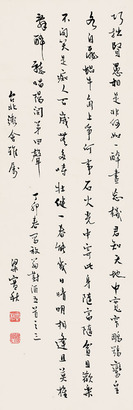 巧拙賢愚相是非何如一醉盡忘機君知天地中寬窄鵰鶚鸞皇
各自飛蝸牛角上爭何事石火光中寄此身隨富隨貧且歡樂
不開口笑是癡人百歲無多時壯健一春能幾日晴明相逢且莫推
辭醉聽唱陽關第四聲
台北 會雅屬
丁卯春寫放翁對酒五首之三
梁實秋